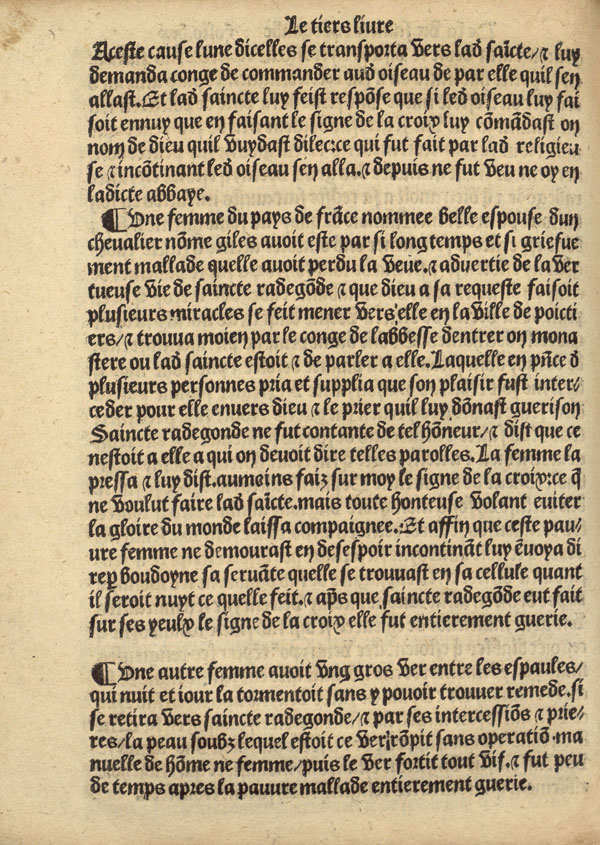 Le tiers liure
Aceste cause lune dicelles se transporta vers lad̄ sai͞cte/⁊ luy
demanda conge de commander aud̄ oiseau de par elle quil sen
allast. Et lad̄ saincte luy feist respōse que si led̄ oiseau luy fai
soit ennuy que en faisant le signe de la croix luy cōmādast on
nom de dieu quil vuydast dilec:ce qui fut fait par lad̄ religieu
se ⁊ incōtinant led̄ oiseau sen alla.⁊ depuis ne fut veu ne oy en
ladicte abbaye.
¶ Une femme du pays de frāce nommee belle espouse dun
chevalier nōme giles avoit este par si long temps et si griefue
ment mallade quelle avoit perdu la veue.⁊ advertie de la ver
tueuse vie de saincte radegōde ⁊ que dieu a sa requeste faisoit
plusieurs miracles se feit mener vers elle en la ville de poicti
ers/⁊ trouva moien par le conge de labbesse dentrer on mona
stere ou lad̄ saincte estoit ⁊ de parler a elle. Laquelle en pñce d̄
plusieurs personnes pria et supplia que son plaisir fust inter⸗
ceder pour elle enuers dieu ⁊ le prier quil luy dōnast guerison
Saincte radegonde ne fut contante de tel hōneur/⁊ dist que ce
nestoit a elle a qui on devoit dire telles parolles. La femme la
pressa ⁊ luy dist. aumeins faiz sur moy le signe de la croix:ce q̄
ne voulut faire lad̄ sai͞cte. mais toute honteuse volant eviter
la gloire du monde laissa compaignee. Et affin que ceste pau⸗
ure femme ne demourast en desespoir incontināt luy ēuoya di
re ꝑ boudoyne sa seruāte quelle se trouvast en sa cellule quant
il seroit nuyt ce quelle feit. ⁊ ap̄s que saincte radegōde eut fait
sur ses yeulx le signe de la croix elle fut entierement guerie.
¶ Une autre femme avoit vng gros ver entre les espaules/
qui nuit et iour la tormentoit sans y pouoir trouver remede. si
se retira vers saincte radegonde/⁊ par ses intercessiōs ⁊ prie⸗
res/la peau soubz lequel estoit ce ver rōpit sans operatiō ma
nuelle de hōme ne femme/puis le ver sortit tout vif.⁊ fut peu
de temps apres la pauure mallade entierement guerie.